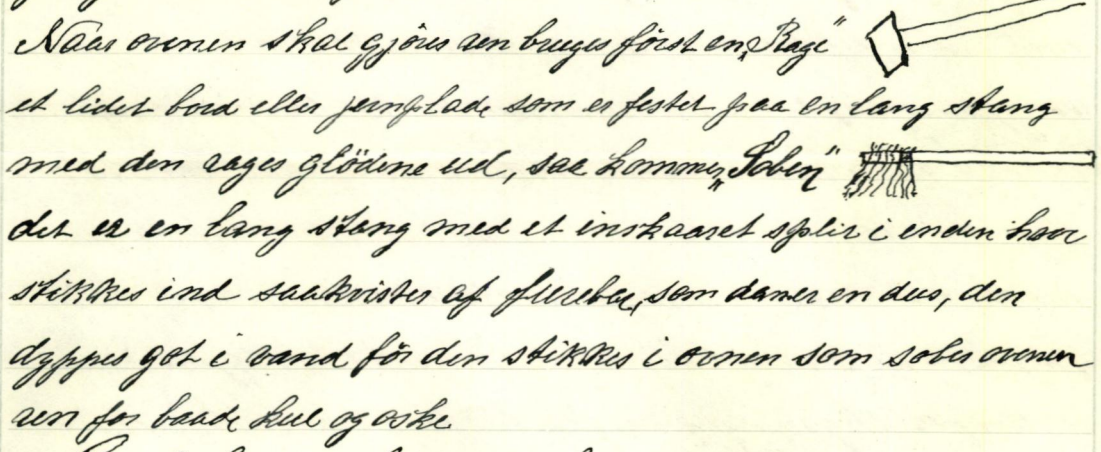 Naar ovnen skal gjöres ren bruges först en „Rage"
et lidet bord eller jernplade som er festet paa en lang stang
med den rages glödene ud, saa kommer „Soben"
det er en lang stang med et inskaaret split i enden hvor
stikkes ind saa kvister af furebar, som daner en dus, den
dyppes got i vand för den stikkes i ovnen som sober ovnen
ren for baade kul og aske